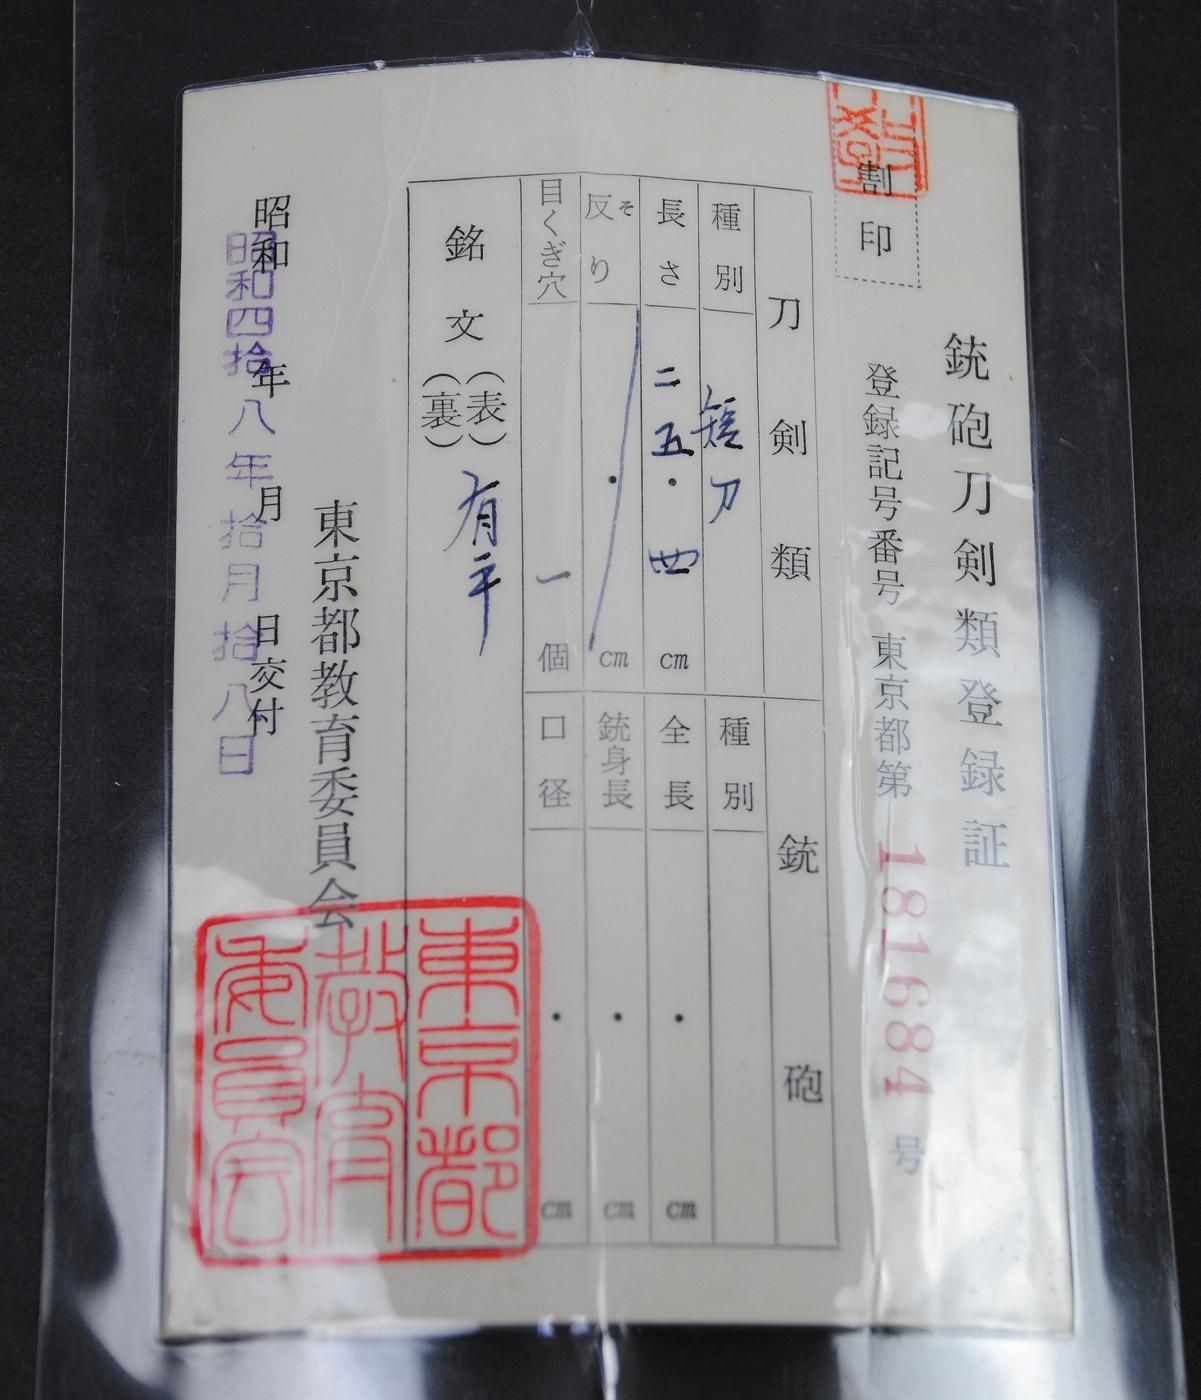 銃砲刀剣類登録証
割印
登録記号番号 東京都第 181684 号
刀剣類
銃砲
種別 短刀
種別
長さ 二五・四 cm
全長 ・ cm
反り そ ・ cm
銃身長 ・ cm
目くぎ穴 一 個
口径 ・ cm
銘文 (表) 有平
(裏)
東京都教育委員会
昭和 年 月 日交付
昭和四拾八年拾月拾八日
東京都
教育
委員会